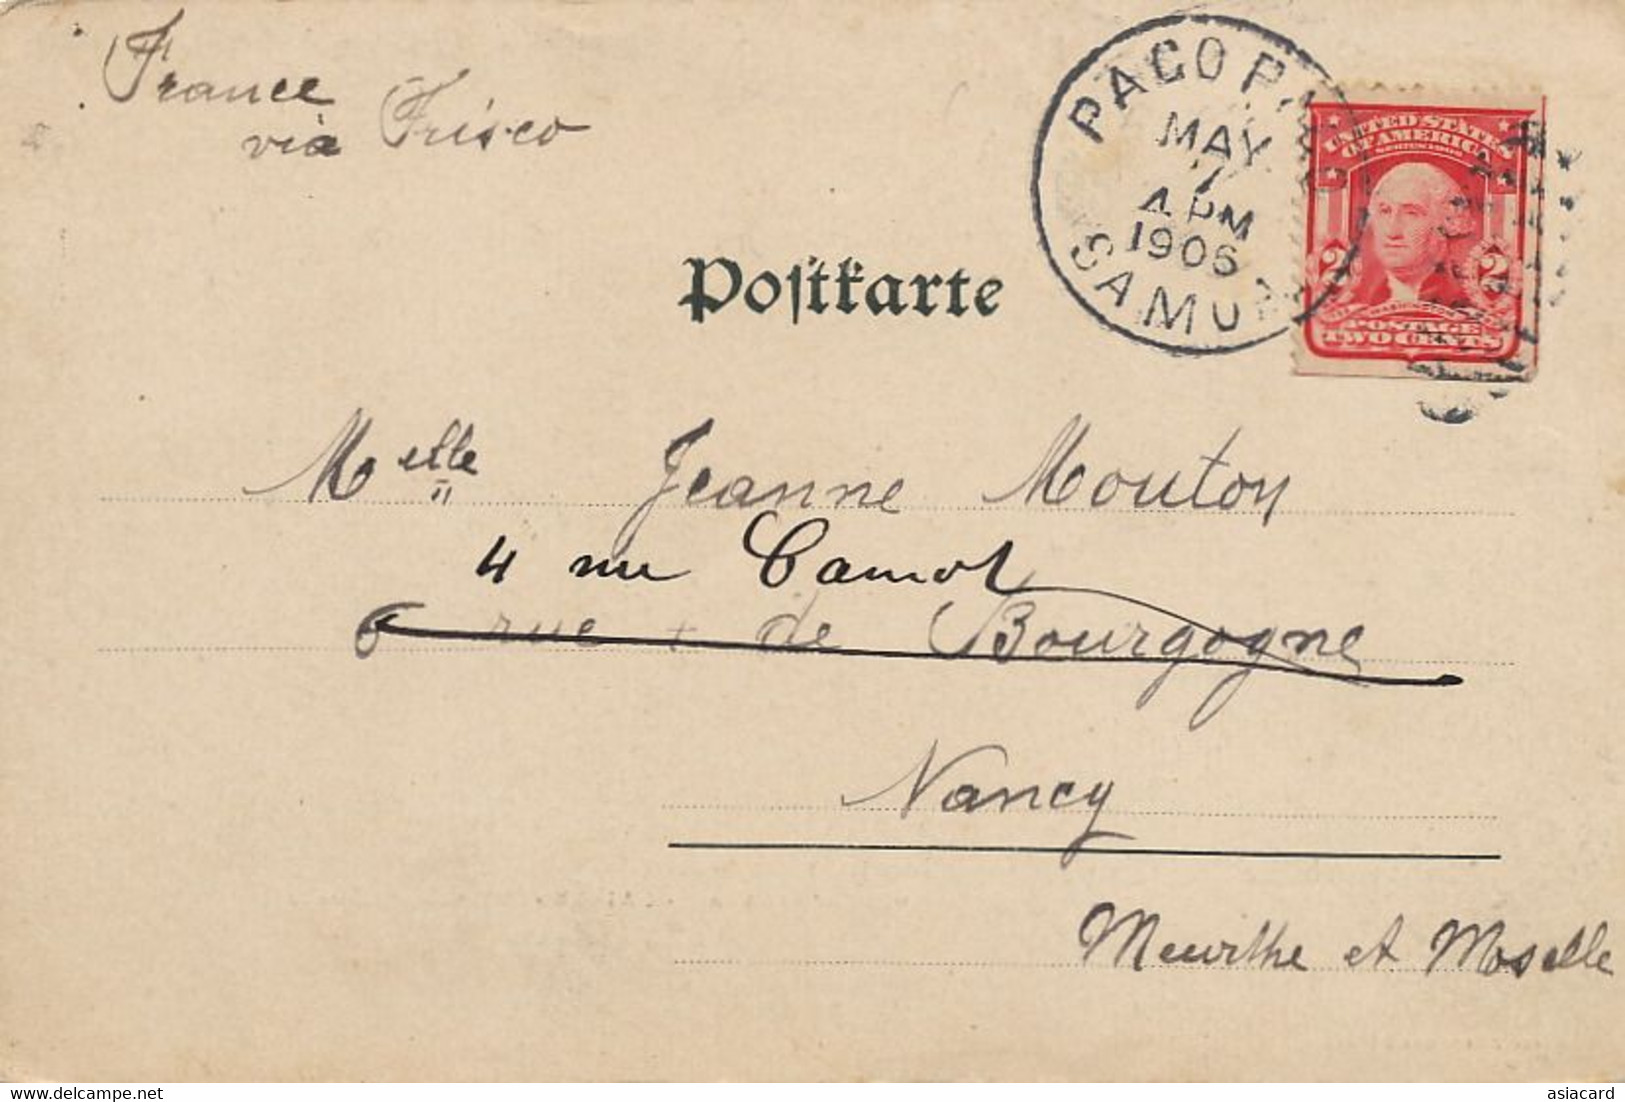 France
via Frisco
PAGO PAGO
MAY
7
4 PM
1906
SAMOA
UNITED STATES
OF AMERICA
SERIES 1902
2 2
POSTAGE
TWO CENTS
Postkarte
Melle Jeanne Mouton
4 rue Carnot
6 rue de Bourgogne
Nancy
Meurthe et Moselle
asiacard